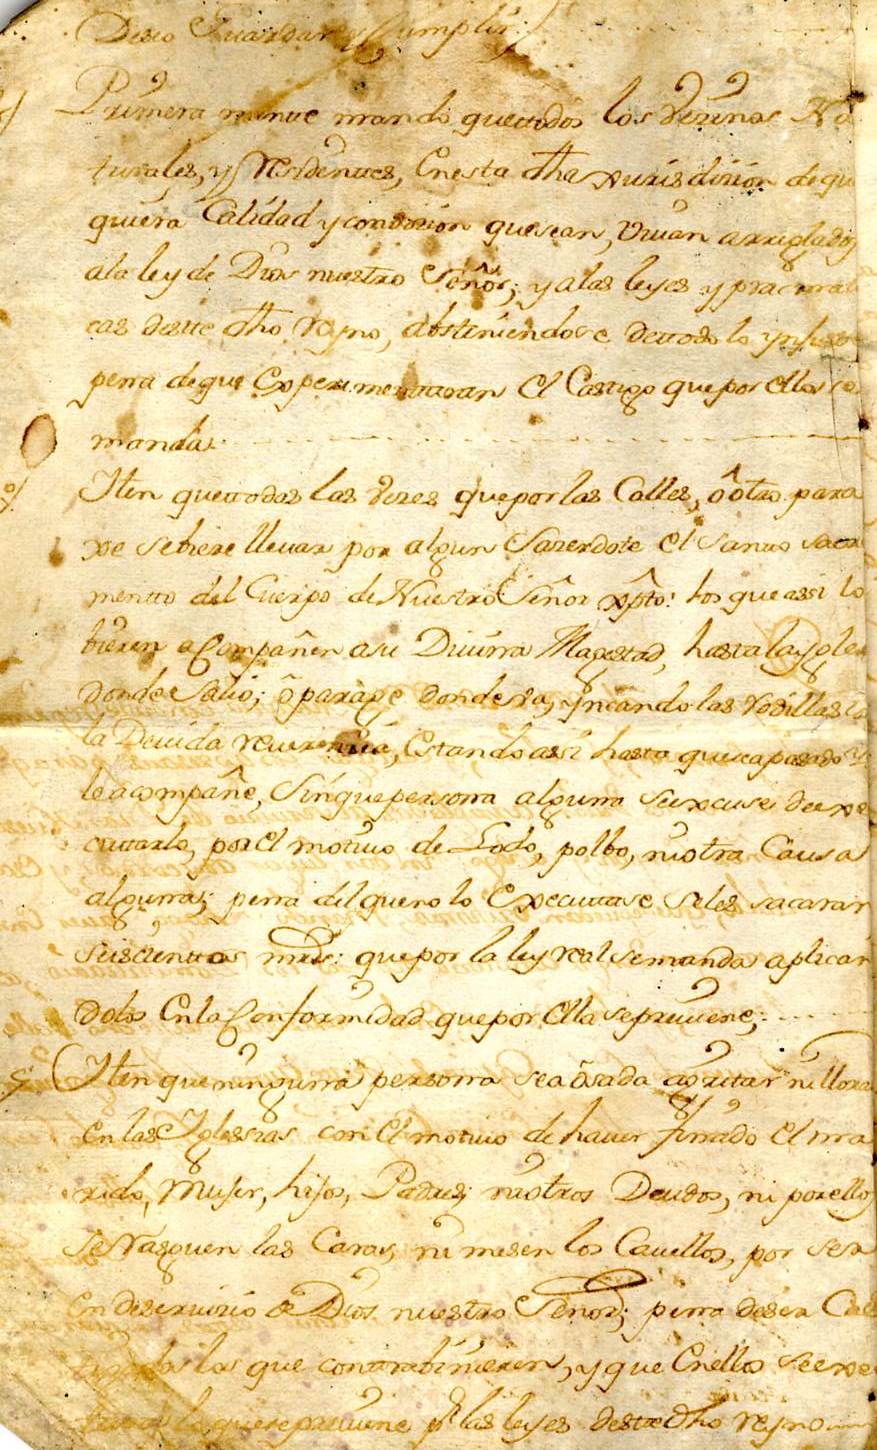 Deseo Guardar y Cumplir;
Primera mente mando que ttodos los Vezinos Na
turales, y Residentes, En esta dha Xurisdizion de qu
quiera Calidad y condizion que sean, Vivan arreglados
a la ley de Dios nuestro Señor; y a las leyes y pracmati
cas deste dho Reyno, absteniendose de ttodo lo
pena de que Experimenttaran El Castigo que por ellas se
manda.
Iten que ttodas las Vezes que por las Calles, ô otro para
xe se biere lleuar por algun Sazerdote el Santto sacra
mentto del Cuerpo de Nuestro Señor xpto: los que assi lo
bieren acompañen a su Divina Magestad, hasta la ygle
donde Salio; ô paraxe donde va, yncando las rodillas
la Devida reverenzia, Estando assi hasta que sea pasado y
le acompañe, Sin que persona alguna se excuse de exe
cuttarlo, por el motivo de Lodo, polbo, ni otra Causa
alguna; pena del que no lo Executtase se les sacaran
seiscienttos mrs: que por la ley real se manda aplican
dolos En la Conformidad que por Ella se previene;
Iten que ninguna persona sea osada a gritar ni llorar
en las Iglessias con el motivo de haver finado el ma
rido, Muger, hijos, Padres; ni otros Deudos, ni por ellos
se rasguen las Caras, ni mesen los Cavellos, por ser
en deservizio de Dios nuestro Señor; pena de ser Cas
tigados los que contrabinieren, y que En ellos se exe
lo que se previene pr las leyes deste dho reyno